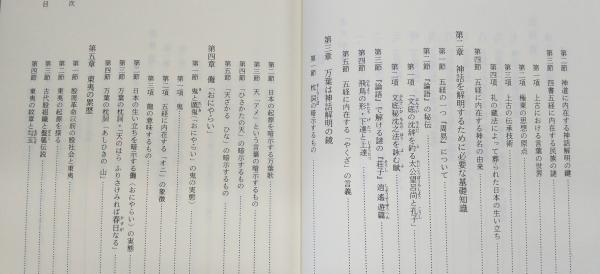 第二節 神道に内在する神話解明の鍵
第三節 四書五経に内在する民族の謎
第一項 上古における言葉の世界
第二項 極東の思想の原点
第三項 上古の伝承技術
第四項 礼の蔵法によって葬られた日本の生い立ち
第四節 五経に内在する神名の由来
第二章 神話を解明するために必要な基礎知識
第一節 五経の一つ『周易』について
第二節 『論語』の秘伝
第一項 「文底の沈辞を釣る太公望呂尚と孔子」
第二項 文底秘沈の法を詠む賦
第三節 『論語』で解ける謎の『荘子』逍遙遊篇
第四節 飛鳥の形・下達と上達
第五節 五経に内在する「やくざ」の言義
第三章 万葉は神話解明の鏡
第一節 枕詞の暗示するもの
目次
第二節 日本の起源を暗示する万葉歌
第三節 天「アメ」という言葉の暗示するもの
第四節 「ひさかたの天」の暗示するもの
第五節 「天ざかる ひな」の暗示するもの
第四章 儺（おにやらい）
第一節 鬼と饿鬼（おにやらい）の鬼の実態
第一項 鬼
第二項 五経に内在する「オニ」の象徴
第三項 龍の意味するもの
第二節 日本の生い立ちを暗示する儺（おにやらい）の実態
第三節 万葉の枕詞「天のはら ふりさけみれば春日なる」
第四節 万葉の枕詞「あしひきの 山」
第五章 東夷の累歴
第一節 殷周革命以前の殷社会と東夷
第二節 東夷の起源を探る
第三節 古代殷祖織と盤瓠伝説
第四節 東夷の紋章と勾玉